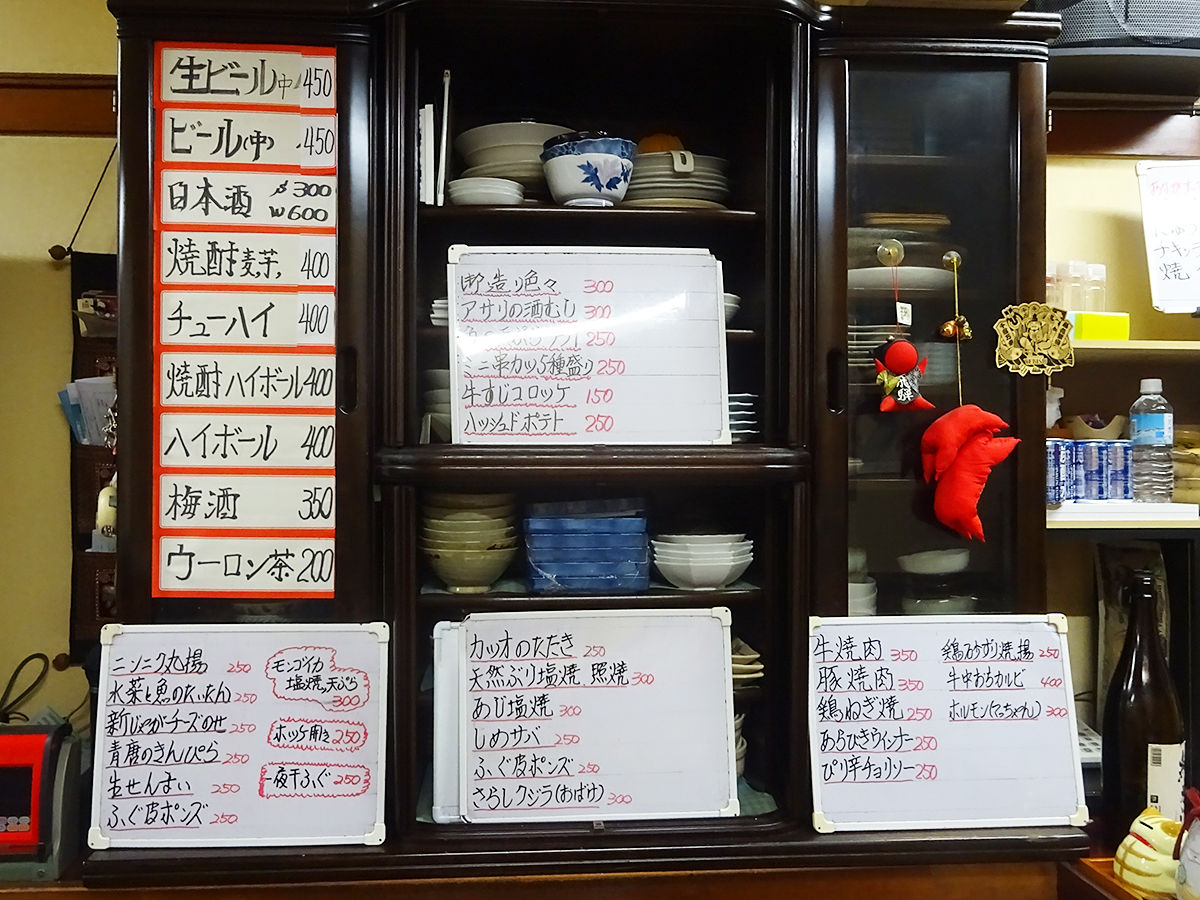 生ビール中 450
ビール(中) 450
日本酒 小300
大600
焼酎 麦芋 400
チューハイ 400
焼酎ハイボール 400
ハイボール 400
梅酒 350
ウーロン茶 200
造り色々 300
アサリの酒むし 300
250
ミニ串カツ5種盛り 250
牛すじコロッケ 150
ハッシュドポテト 250
ニンニク丸揚 250
水菜と魚のたいたん 250
新じゃがチーズのせ 250
青唐のきんぴら 250
生せんまい 250
ふぐ皮ポンズ 250
モンゴイカ
塩焼、天ぷら
300
ホッケ開き 250
一夜干ふぐ 250
カツオのたたき 250
天然ぶり塩焼 照焼 300
あじ塩焼 300
しめサバ 250
ふぐ皮ポンズ 250
さらしクジラ(おばけ) 300
牛焼肉 350
豚焼肉 350
鶏ねぎ焼 250
あらびきウィンナー 250
ぴり辛チョリソー 250
鶏 焼、揚 250
牛中おちカルビ 400
ホルモン(てっちゃん) 300